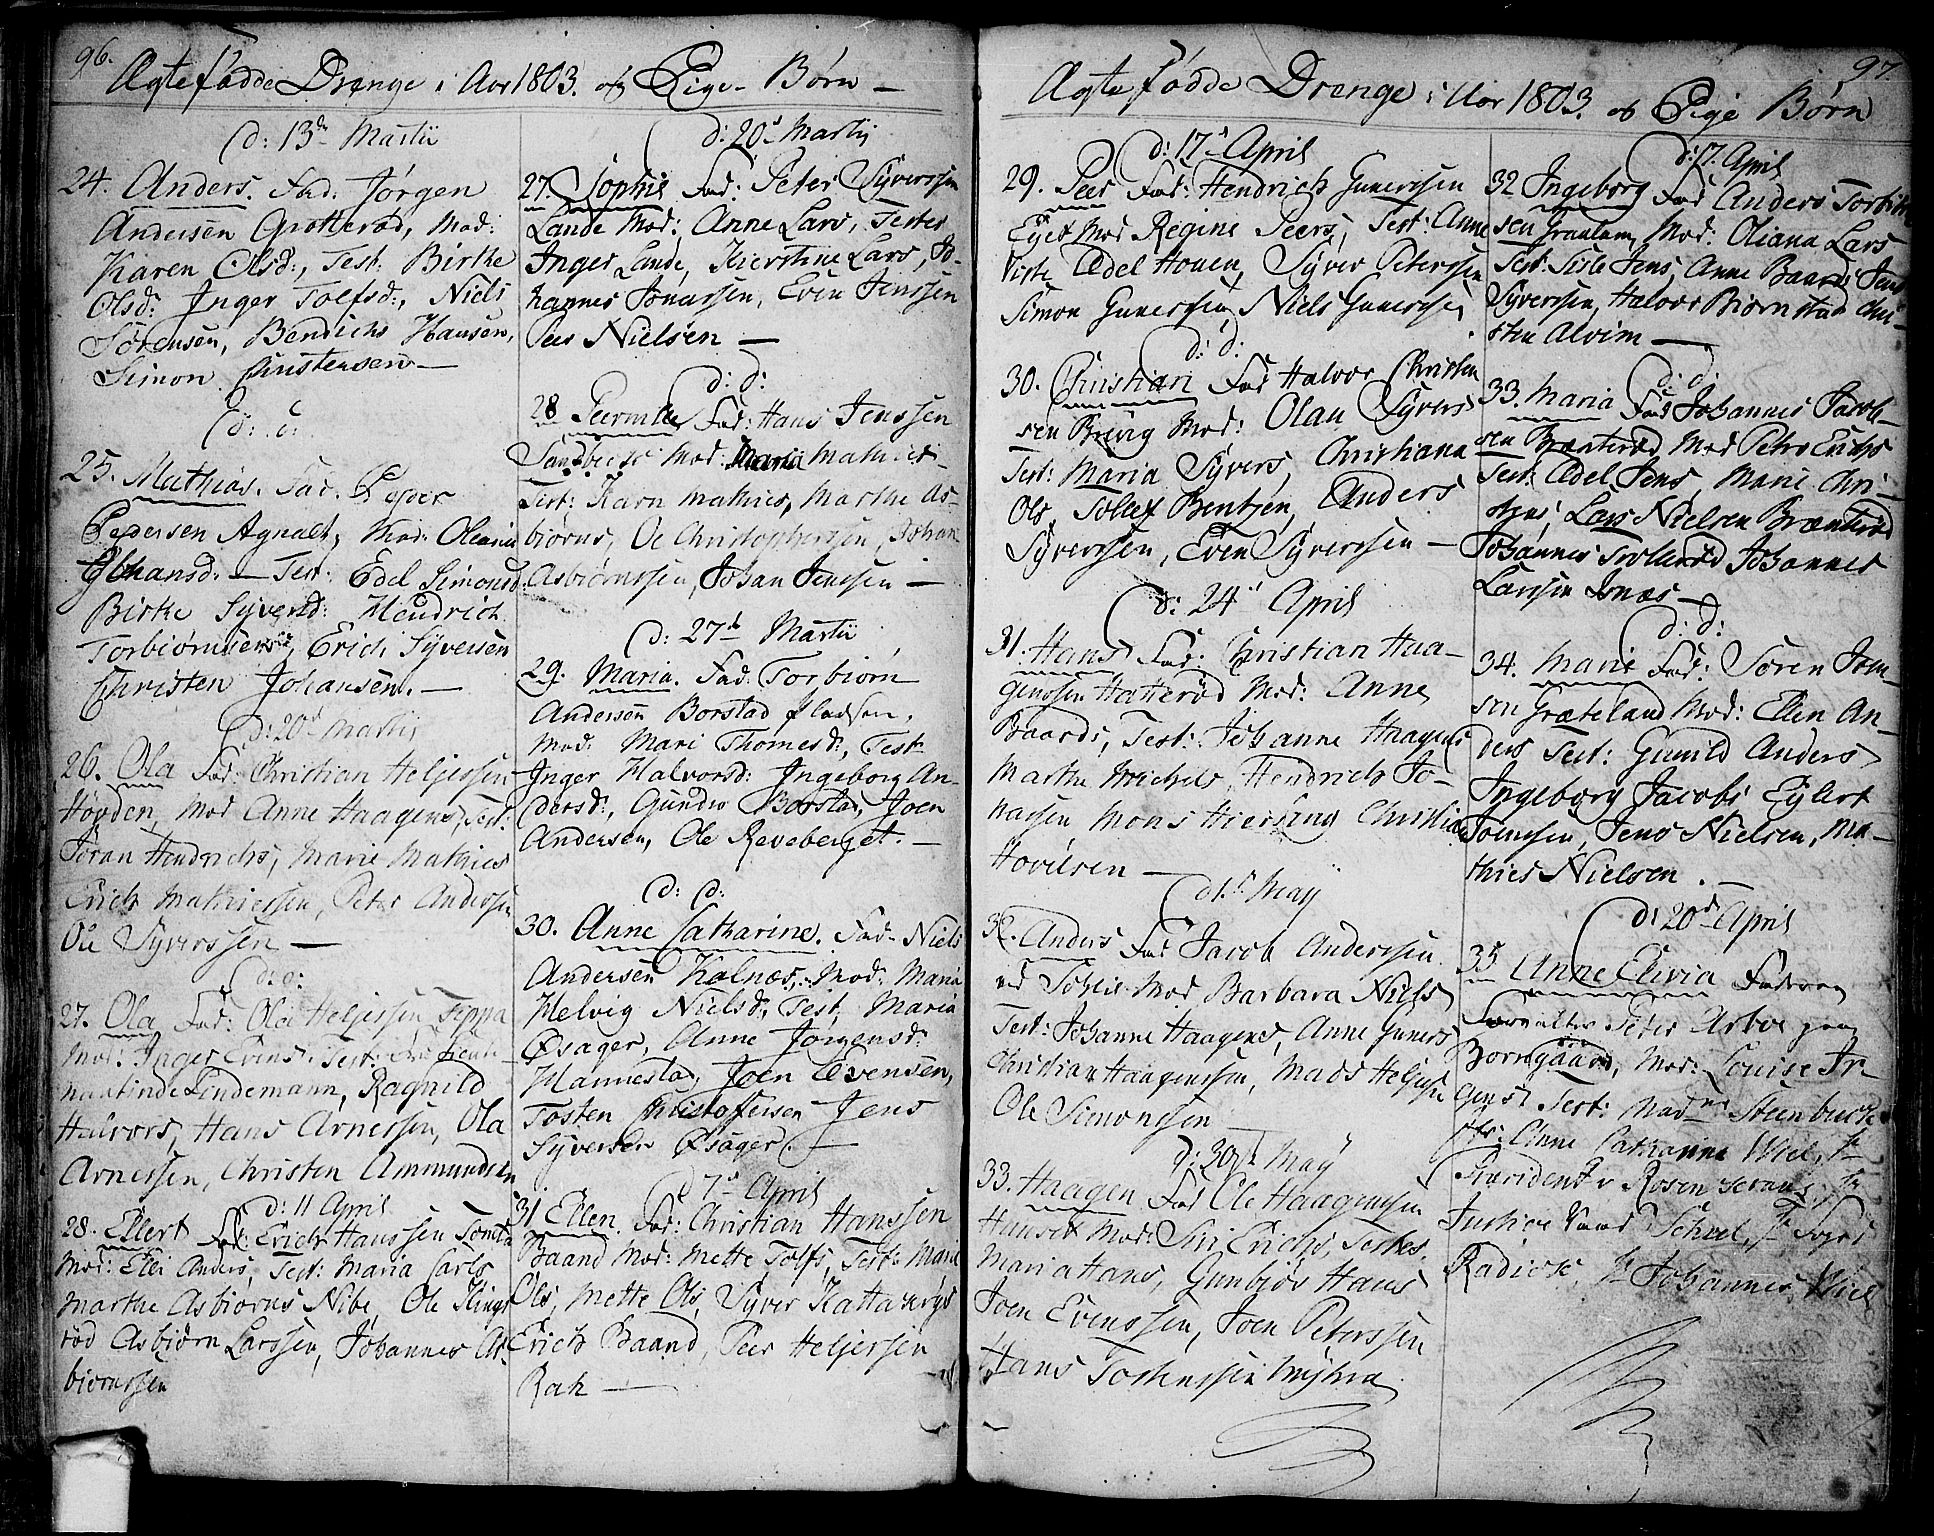 96.
Ægtefødde Drenge i Aar 1803. og Pige-Børn —
d: 13de Martii
24. Anders. Fad: Jørgen
Andersen Grotterød, Mod:
Karen Olsd:, Test: Birthe
Olsd: Inger Tolfsd:, Niels
Sørensen, Bendichs Hansen,
Simon Christensen —
d: d:
25. Mathias. Fad. Peder
Pedersen Agnalt, Mod: Oleana
Johansd: — Test: Edel Simonsd:
Birthe Syversd: Hendrich
Torbiørnsen, Erich Syversen
Christen Johansen. —
d: 20d Martii
26. Ola Fad: Christian Heljessen
Høyden, Mod Anne Haagens, Test:
Jøran Hendrichs, Marie Mathies
Erich Mathiessen, Peter Andersen
Ole Syverssen —
d: d:
27. Ola Fad: Ola Heljessen Teppa
Mod: Inger Evens: Test:
Lindemann, Ragnild
Halvors, Hans Arnessen, Ola
Arnessen, Christen Ammundsen
d: 11 April
28. Ellert Fad: Erich Hanssen Tomta
Mod: Elli Anders, Test: Maria Carls
Marthe Asbiørns Nibe, Ole Kings
rød Asbiørn Larssen, Johannes As-
biørnssen
d: 20d Martij
27. Sophie Fad: Peter Syverssen
Lande Mod: Anne Lars, Testes
Inger Lande, Kierstine Lars, Jo-
hannes Jonassen, Even Jenssen
Peer Nielsen —
d: d:
28 Peernille Fad: Hans Jenssen
Sandbeck Mod: Maria Mathies
Test: Karn Mathies, Marthe As-
biørns, Ole Christophersen, Johan
Asbiørnssen, Johan Jenssen —
d: 27de Martii
29. Maria. Fad: Torbiørn
Andersen Borstad pladsen,
Mod: Mari Thomesd:, Test:
Inger Halvorsd: Ingeborg An-
dersd:, Gundro Borstad, Joen
Andersen, Ole Reveberget. —
d: d:
30. Anne Catharine. Fad: Niels
Andersen Kalnæs, Mod: Maria
Helvig Nielsd:, Test: Maria
Øsager, Anne Jørgensd:
Hannestad, Joen Evensen,
Tosten Christoffersen Jens
Syversen Øsager. —
d 7d April
31 Ellen. Fad: Christian Hanssen
Baand Mod: Mette Tolfs, Test: Marie
Ols, Mette Ols, Syver Kattakrys
Erich Baand, Peer Heljersen
Rah —
97
Ægtefødde Drenge i Aar 1803. og Pige Børn
d: 17d April
29. Peer Fad: Hendrich Gunerssen
Eget Mod Regine Peers, Test: Anne
Edel Houen, Syver Peterssen
Simon Gunerssen, Niels Gunerssen
d: d:
30. Christian Fad Halvor Christen
sen Brevig Mod: Olau Syvers
Test: Maria Syvers, Christiana
Ols, Tollef Bentzen, Anders
Syverssen, Even Syverssen —
d: 24d April
31. Hans Fad: Christian Haa-
genssen Hatterød Mod: Anne
Baards, Test: Johanne Haagens
Marthe Michels, Hendrich Jo-
nassen Mons Christian
—
d 1d May
32. Anders Fad Jacob Anderssen
Mod Barbara Niels
Test: Johanne Haagens, Anne Guners
Christian Haagenssen, Mads Heljess
Ole Simonssen —
d: 20de May
33. Haagen Fad Ole Haagenssen
Mod: Siri Erichs, Testes
Maria Hans, Gunbjør Hans
Joen Evenssen, Joen Peterssen
Hans Tostenssen
d: 7. April
32 Ingeborg Fad Anders Torbiørn
sen Graalum, Mod. Oliana Lars
Test: Sisle Jens, Anne Baards, Jens
Syverssen, Halvor Biørnstad Chri-
sten Alvim —
d: d:
33. Maria Fad Johannes Jacob-
sen Brænterød, Mod Petro Erichs
Test: Edel Jens, Marie Chri-
stens, Lars Nielsen Brænterød
Johannes Johannes
Larssen Jonæs —
d: d:
34. Marie Fad: Søren Joen-
sen Græteland Mod: Ellen An-
ders Test: Gunild Anders
Ingeborg Jacobs Eylert
Joenssen, Jens Nielsen, Ma-
thies Nielsen. —
d: 20de April
35 Anne Elivia Faderen
Forvalter Peter Arboe paa
Borregaard, Mod: Louise
Test: Mad:me Steenbuch
Anne Catharina Wiel, Hr
Præsident v Rosen
Justice Raad Scheel, Hr Foged
Radich, Hr Johannes Wiel